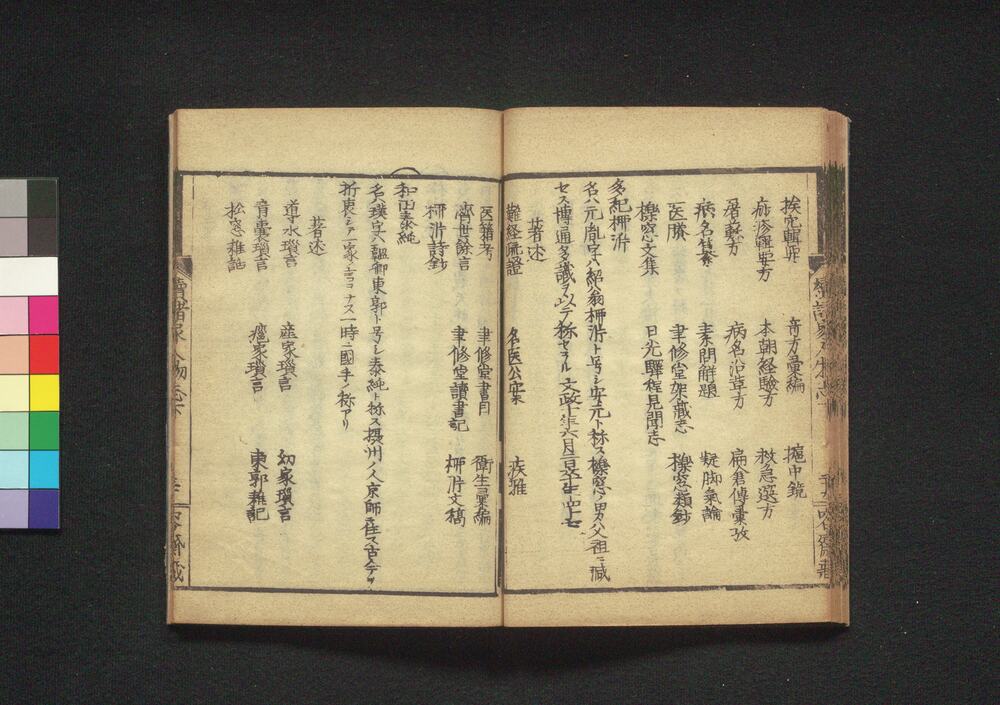 挨穴輯弁　奇方彙編　㯶中鏡
麻疹輯要方　本朝経験方　救急選方
屠蘇方　病名沿革方　扁倉傳彙攷
病名纂　素問解題　擬脚氣論
医賸　聿修堂架蔵志　櫟窓類鈔
櫟窓文集　日光驛程見聞志
多紀柳沜
名ハ元胤字ハ紹翁柳沜ト号シ安元ト称ス櫟窓ノ男父祖ニ減
セス博通多識ヲ以テ称セラル文政十年六月三日卒年
著述
難経疏證　名医公案　疾雅
医籍考　聿修堂書目　衛生彙編
濟世餘言　聿修堂讀書記　柳沜文稿
柳沜詩鈔
和田泰純
名ハ璞字ハ韞卿東郭ト号シ泰純ト称ス摂州ノ人京師ニ住ス古今テヲ
折衷シテ一家ノ言ヲナス一時ニ國手ノ称アリ
著述
導水瑣言　産家瑣言　幼家瑣言
青嚢瑣言　瘡家瑣言　東郭雑記
松窓雑話